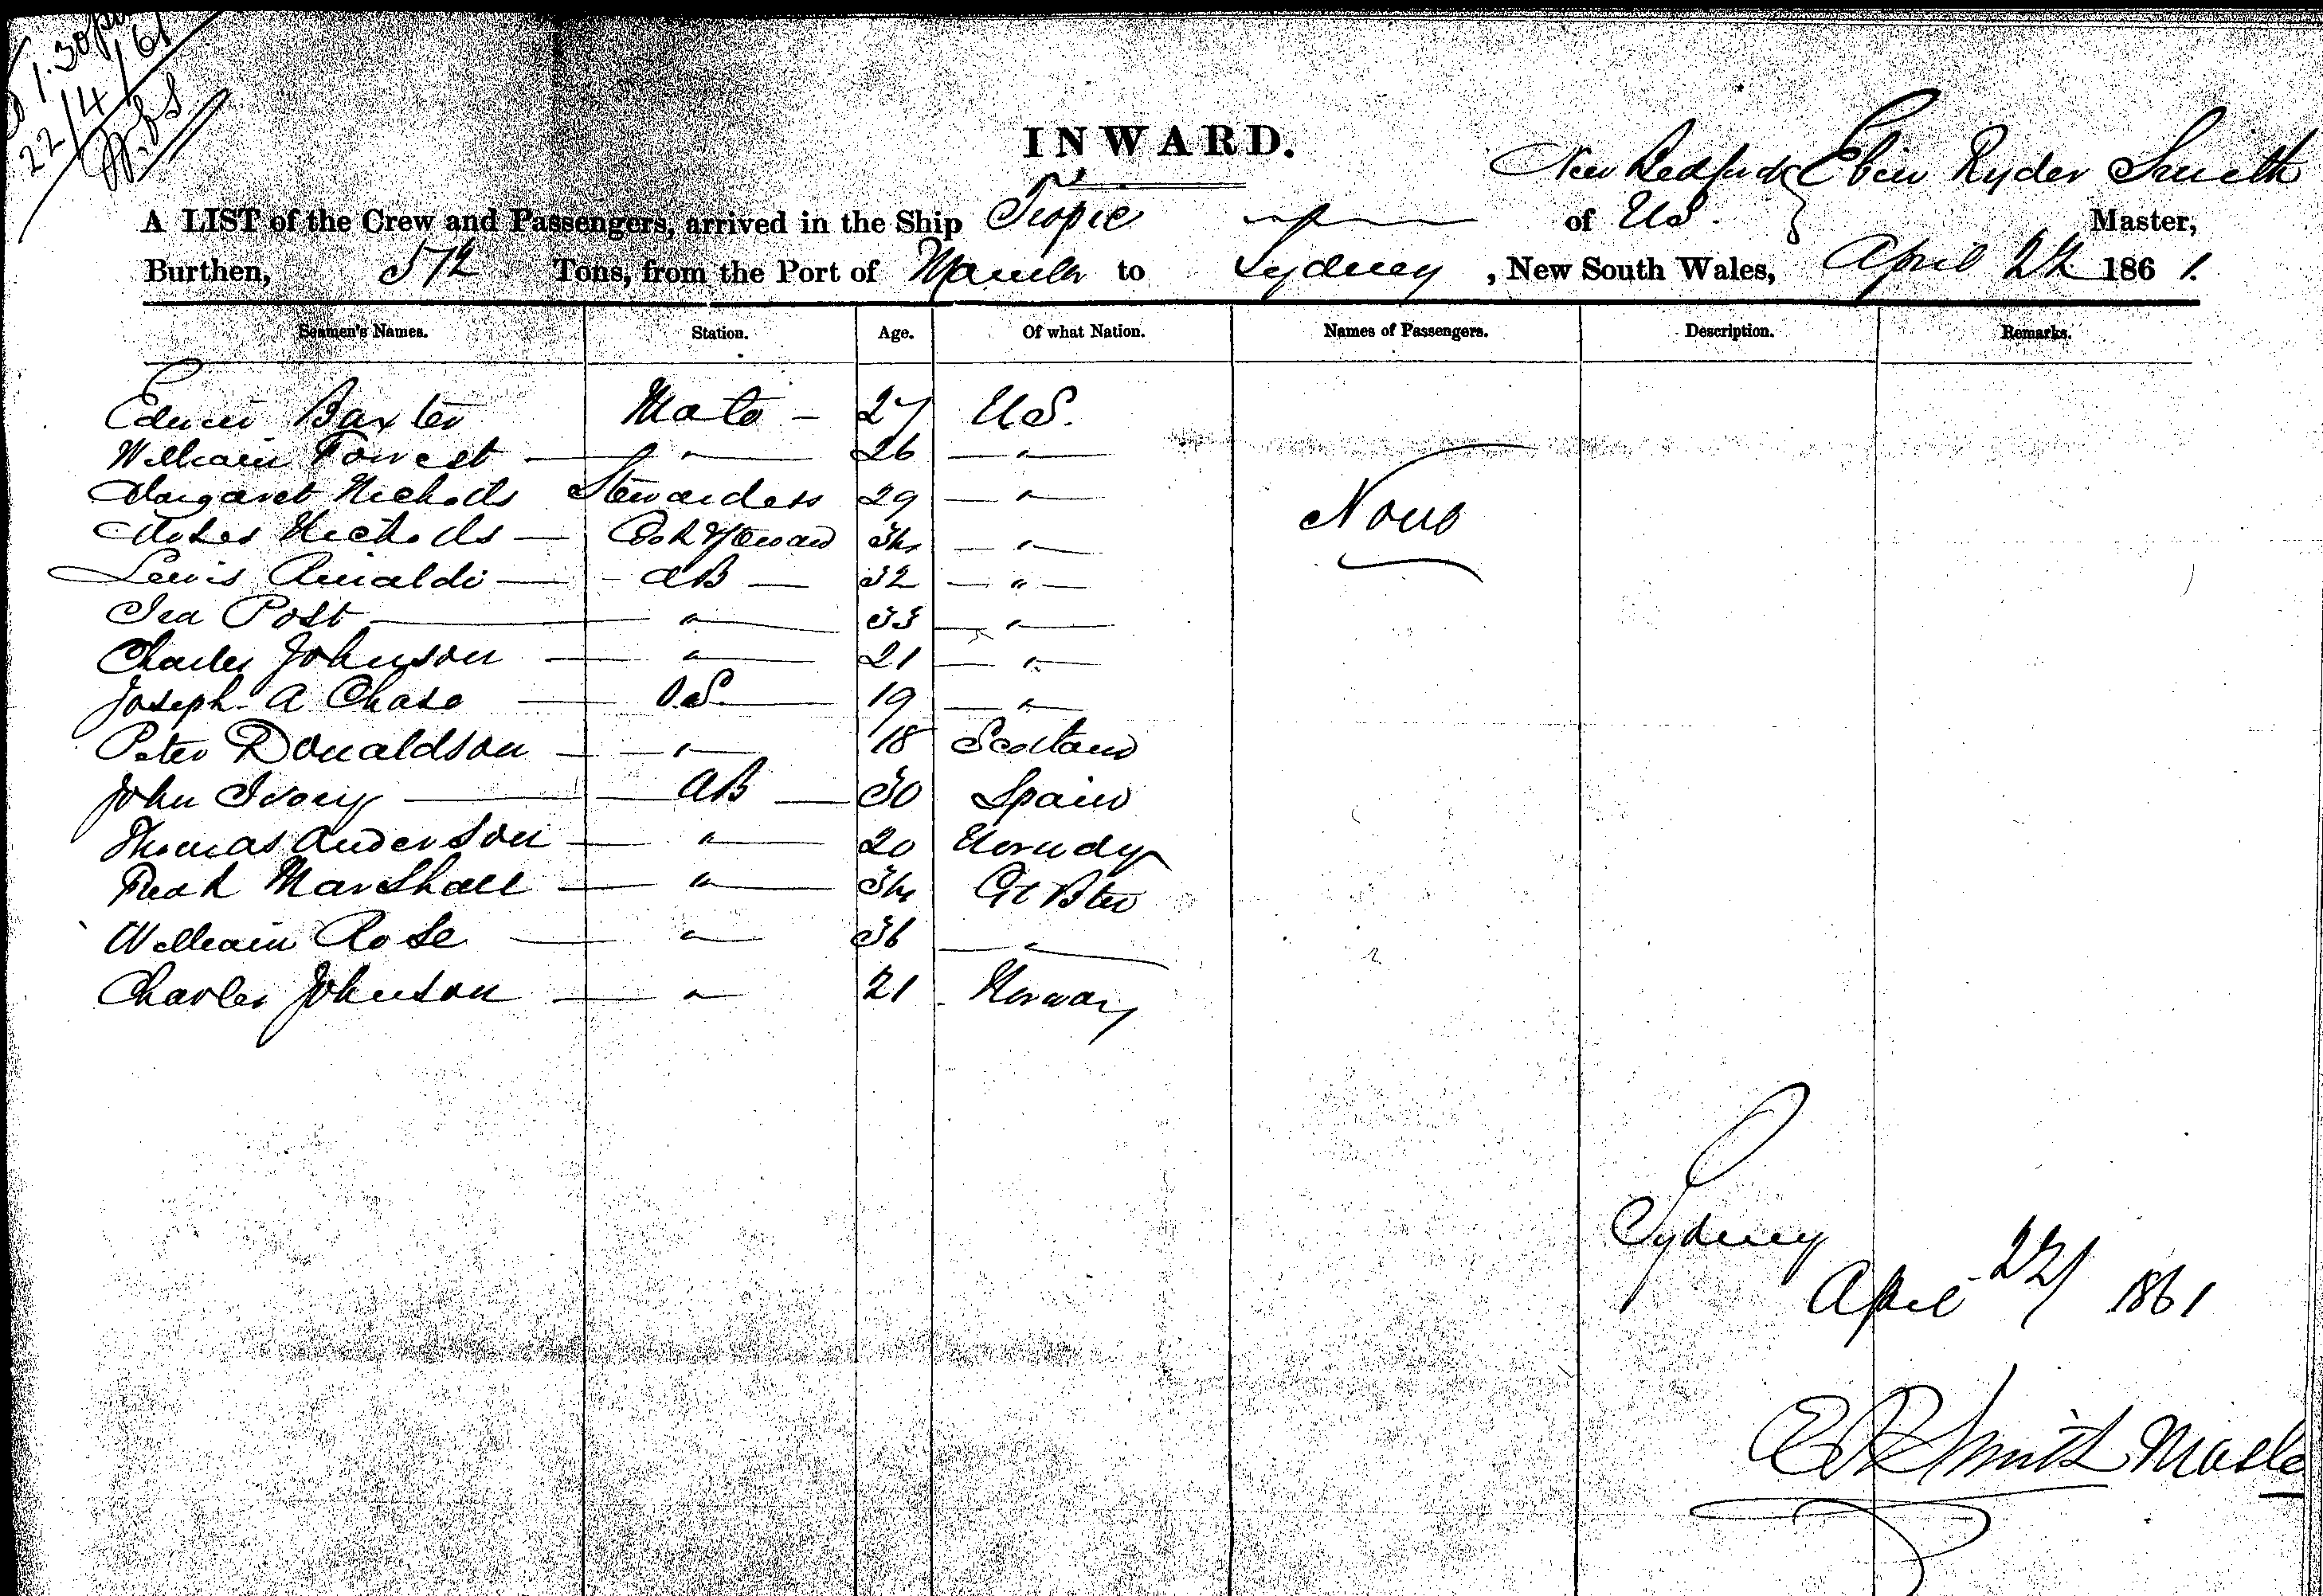 1.30pm
22/4/61
INWARD.
New Bedford Eben Ryder Smith
A LIST of the Crew and Passengers, arrived in the Ship Tropic of US. Master,
Burthen, 572 Tons, from the Port of Manila to Sydney, New South Wales, April 22 1861.
Seamen's Names. Station. Age. Of what Nation. Names of Passengers. Description. Remarks.
Edwin Baxter Mate - 27 US.
William Forrest — " — 26 — " —
Margaret Nicholls Stewardess 29 — " —
Nicholls — Cook & Steward 34 — " —
Lewis Rinaldi — AB — 32 — " —
Ira Post — " — 33 — " —
Charles Johnson — " — 21 — " —
Joseph A Chase — O.S. — 19 — " —
Peter Donaldson — " — 18 Scotland
John Ivory — AB — 30 Spain
Thomas Anderson — " — 20
Fredk Marshall — " — 34 Gt Btn
William Rose — " — 36 — " —
Charles Johnson — " — 21 Norway
None
Sydney
April 22/ 1861
E R Smith Master